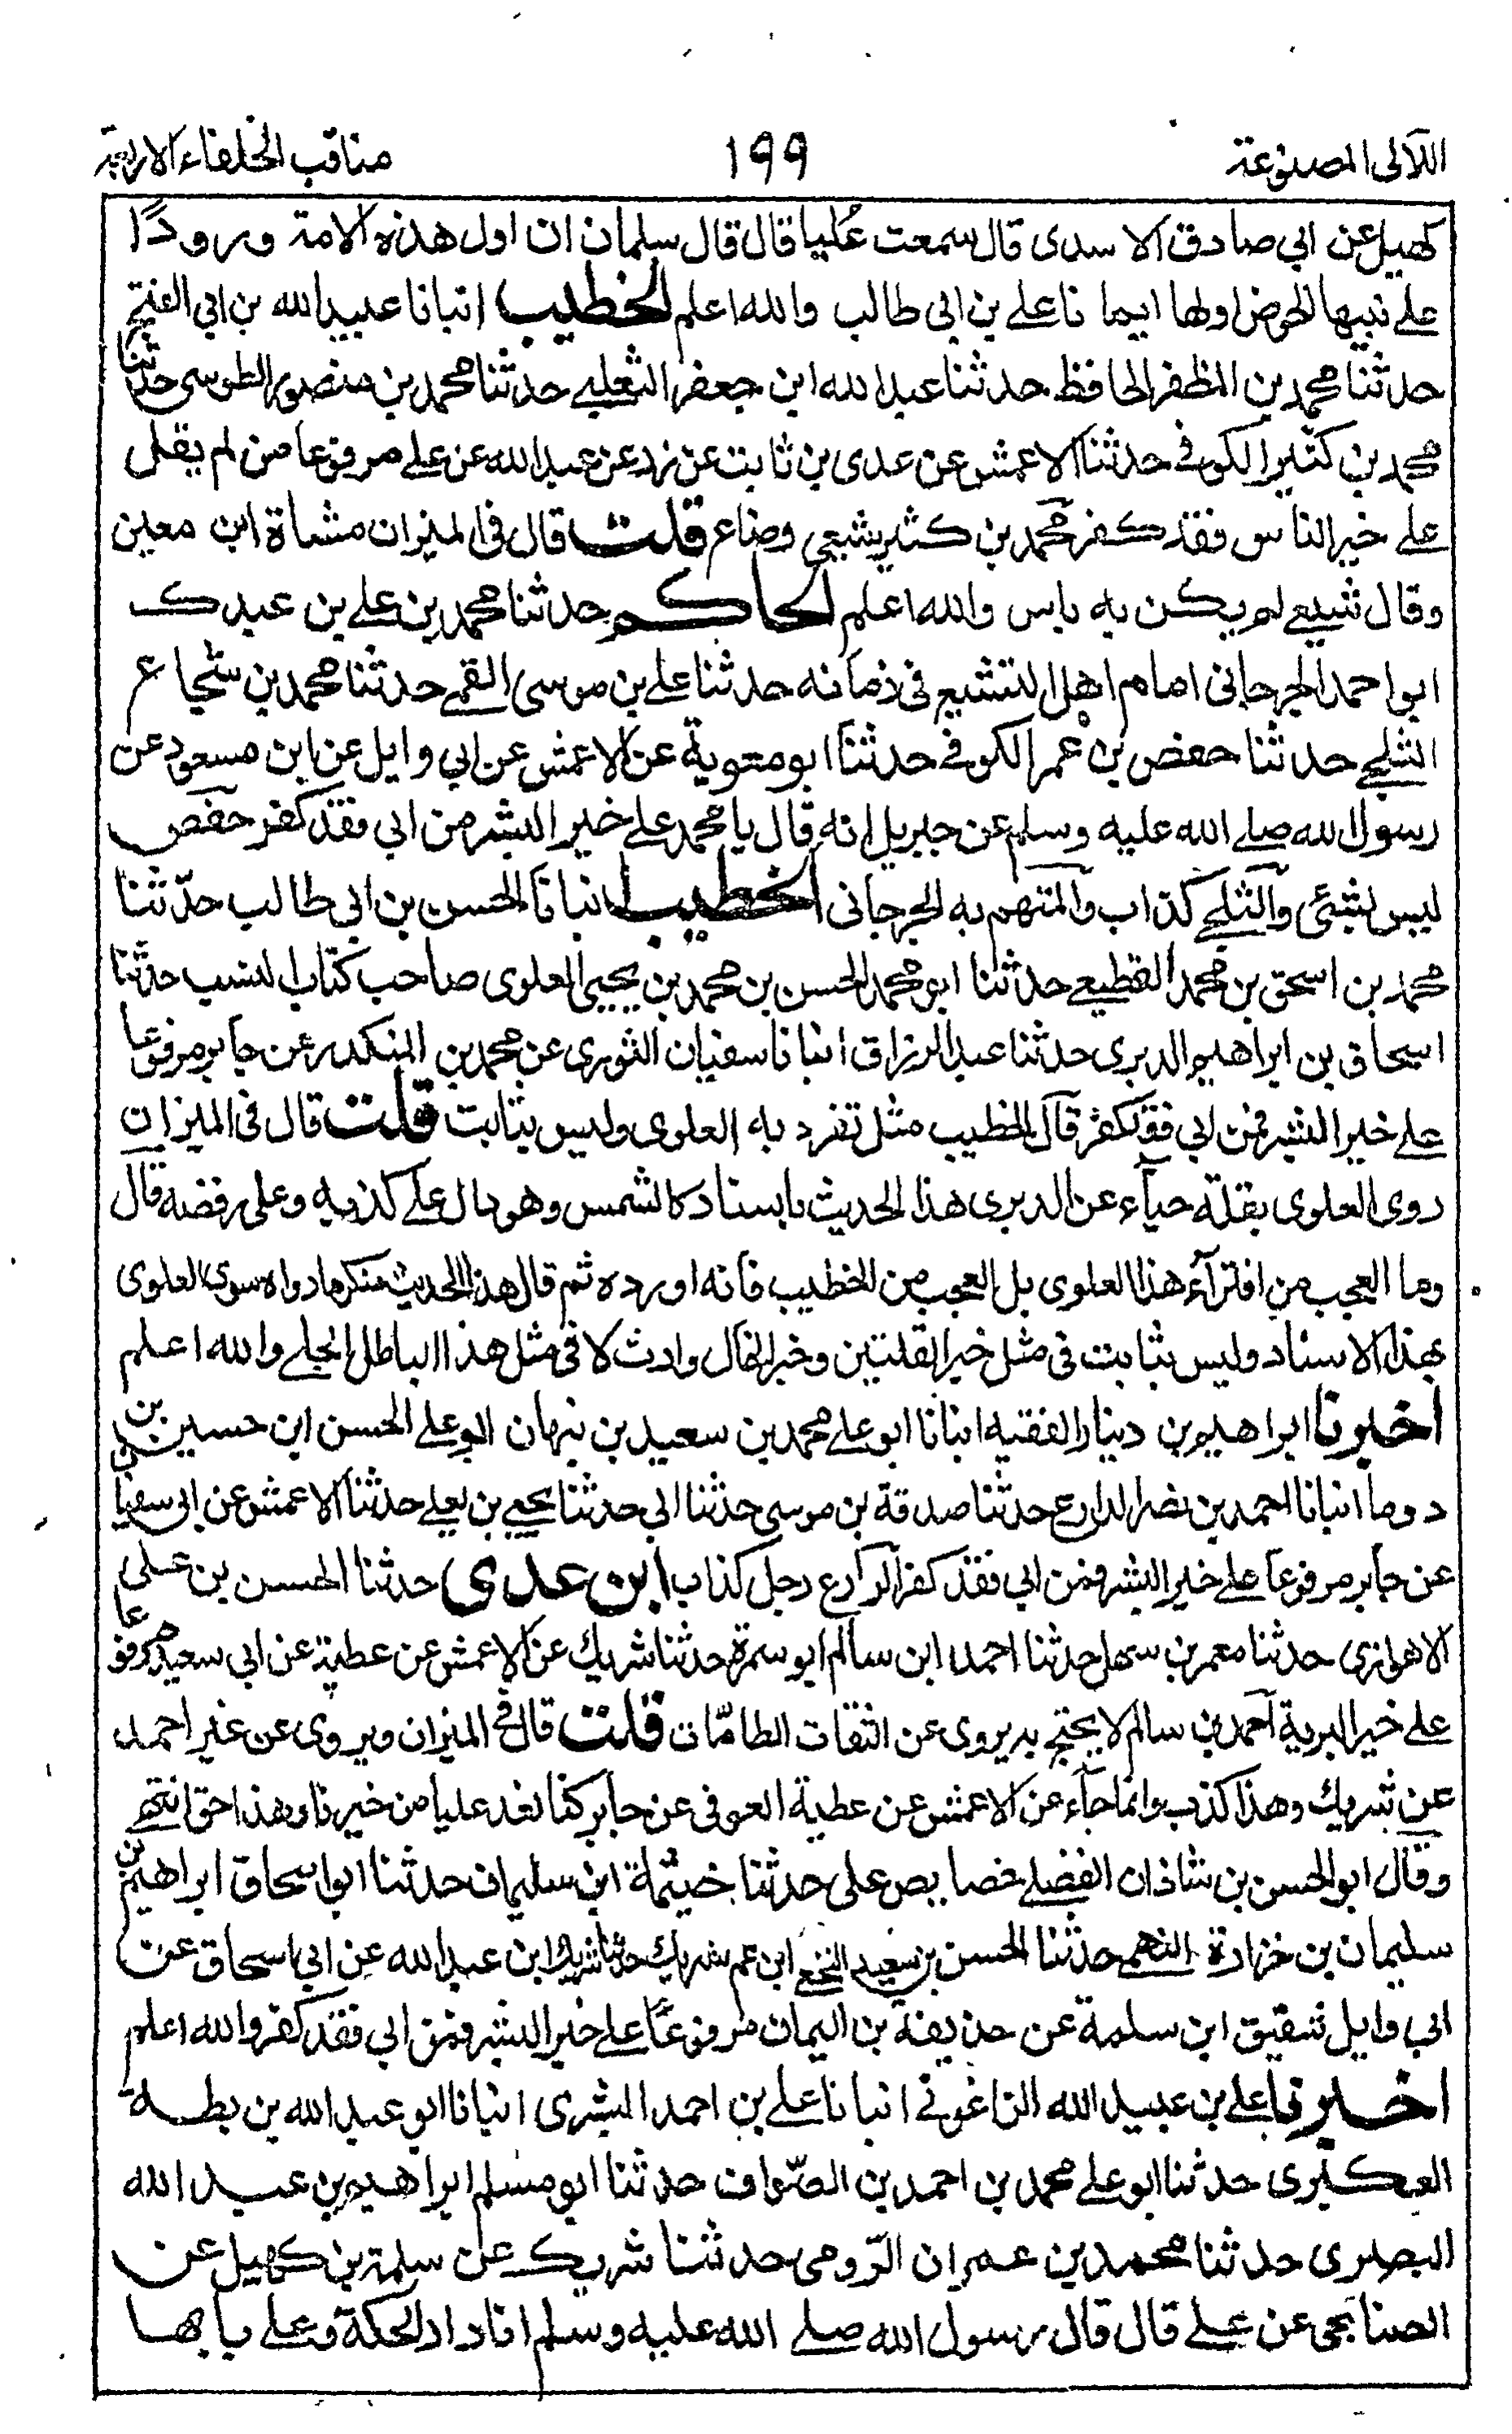 اللآلى المصنوعة ١٩٩ مناقب الخلفاء الاربعة
كهيل عن ابي صادق الاسدى قال سمعت عليا قال قال سلمان ان اول هذه الامة ورودًا
على نبيها الحوض اولها ايمانا على بن ابى طالب والله اعلم الخطيب انبانا عبيد الله بن ابي الفتح
حدثنا محمد بن المظفر الحافظ حدثنا عبد الله ابن جعفر الثعلبي حدثنا محمد بن منصور الطوسى حدثنا
محمد بن كثير الكوفي حدثنا الاعمش عن عدى بن ثابت عن زر عن عبد الله عن على مرفوعا من لم يقل
على خير الناس فقد كفر محمد بن كثير شيعي وضاع قلت قال فى الميزان مشاة ابن معين
وقال شيعي لم يكن به باس والله اعلم الحاكم حدثنا محمد بن على بن عبدك
ابو احمد الجرجانى امام اهل التشيع فى زمانه حدثنا على بن موسى القمي حدثنا محمد بن شجاع
الثلجي حدثنا حفص بن عمر الكوفي حدثنا ابو معوية عن الاعمش عن ابي وايل عن ابن مسعود عن
رسول الله صلى الله عليه وسلم عن جبريل انه قال يا محمد على خير البشر من ابي فقد كفر حفص
ليس بشئ والثلجي كذاب والمتهم به الجرجانى الخطيب انبانا الحسن بن ابي طالب حدّثنا
محمد بن اسحق بن محمد القطيعي حدثنا ابو محمد الحسن بن محمد بن يحيى العلوى صاحب كتاب النسب حدثنا
اسحاق بن ابراهيم الدبرى حدثنا عبد الرزاق انبانا سفيان الثورى عن محمد بن المنكدر عن جابر مرفوعا
على خير البشر فمن ابي فقد كفر قال الخطيب تفرد به العلوى وليس بثابت قلت قال فى الميزان
روى العلوى بقلة حياء عن الدبرى هذا الحديث باسناد كالشمس وهو دال على كذبه وعلى رفضه قال
وما العجب من افترآء هذا العلوى بل العجب من الخطيب فانه اورده ثم قال هذا الحديث منكر ما رواه سوى العلوى
بهذا الاسناد وليس بثابت فى مثل خبر القلتين وخبر الخال وارث لا في مثل هذا الباطل الجلي والله اعلم
اخبرنا ابراهيم بن دينار الفقيه انبانا ابو على محمد بن سعيد بن نبهان ابو على الحسن ابن حسين بن
دوما انبانا احمد بن نصر الدارع حدثنا صدقة بن موسى حدثنا ابي حدثنا يحيي بن يعلى حدثنا الاعمش عن ابي سفيا
عن جابر مرفوعا على خير البشر فمن ابي فقد كفر الدارع رجل كذاب ابن عدى حدثنا الحسن بن على
الاهوازى حدثنا معمر بن سهل حدثنا احمد ابن سالم ابو سمرة حدثنا شريك عن الاعمش عن عطية عن ابي سعيد مرفوعا
على خير البرية احمد بن سالم لا يحتج به يروى عن الثقات الطامّات قلت قال في الميزان ويروى عن غير احمد
عن شريك وهذا كذب وانما جآء عن الاعمش عن عطية العوفى عن جابر كنا نعد عليا من خيرنا وهذا حق انتهى
وقال ابو الحسن بن شاذان الفضلي خصايص على حدثنا خيثمة ابن سليمان حدثنا ابو اسحاق ابراهيم بن
سليمان بن خزازة النهمي حدثنا الحسن بن سعيد النخعي ابن عم شريك حدثنا شريك ابن عبد الله عن ابي اسحاق عن
ابي وايل شقيق ابن سلمة عن حذيفة بن اليمان مرفوعًا على خير البشر فمن ابي فقد كفر والله اعلم
اخبرنا على بن عبيد الله الزاغوني انبانا على بن احمد البشرى انبانا ابو عبد الله بن بطه
العكبرى حدثنا ابو على محمد بن احمد بن الصّواف حدثنا ابو مسلم ابراهيم بن عبد الله
البصرى حدثنا محمد بن عمران الرّومى حدثنا شريك عن سلمة بن كهيل عن
الصنابحى عن على قال قال رسول الله صلى الله عليه وسلم انا دار الحكمة وعلى بابها